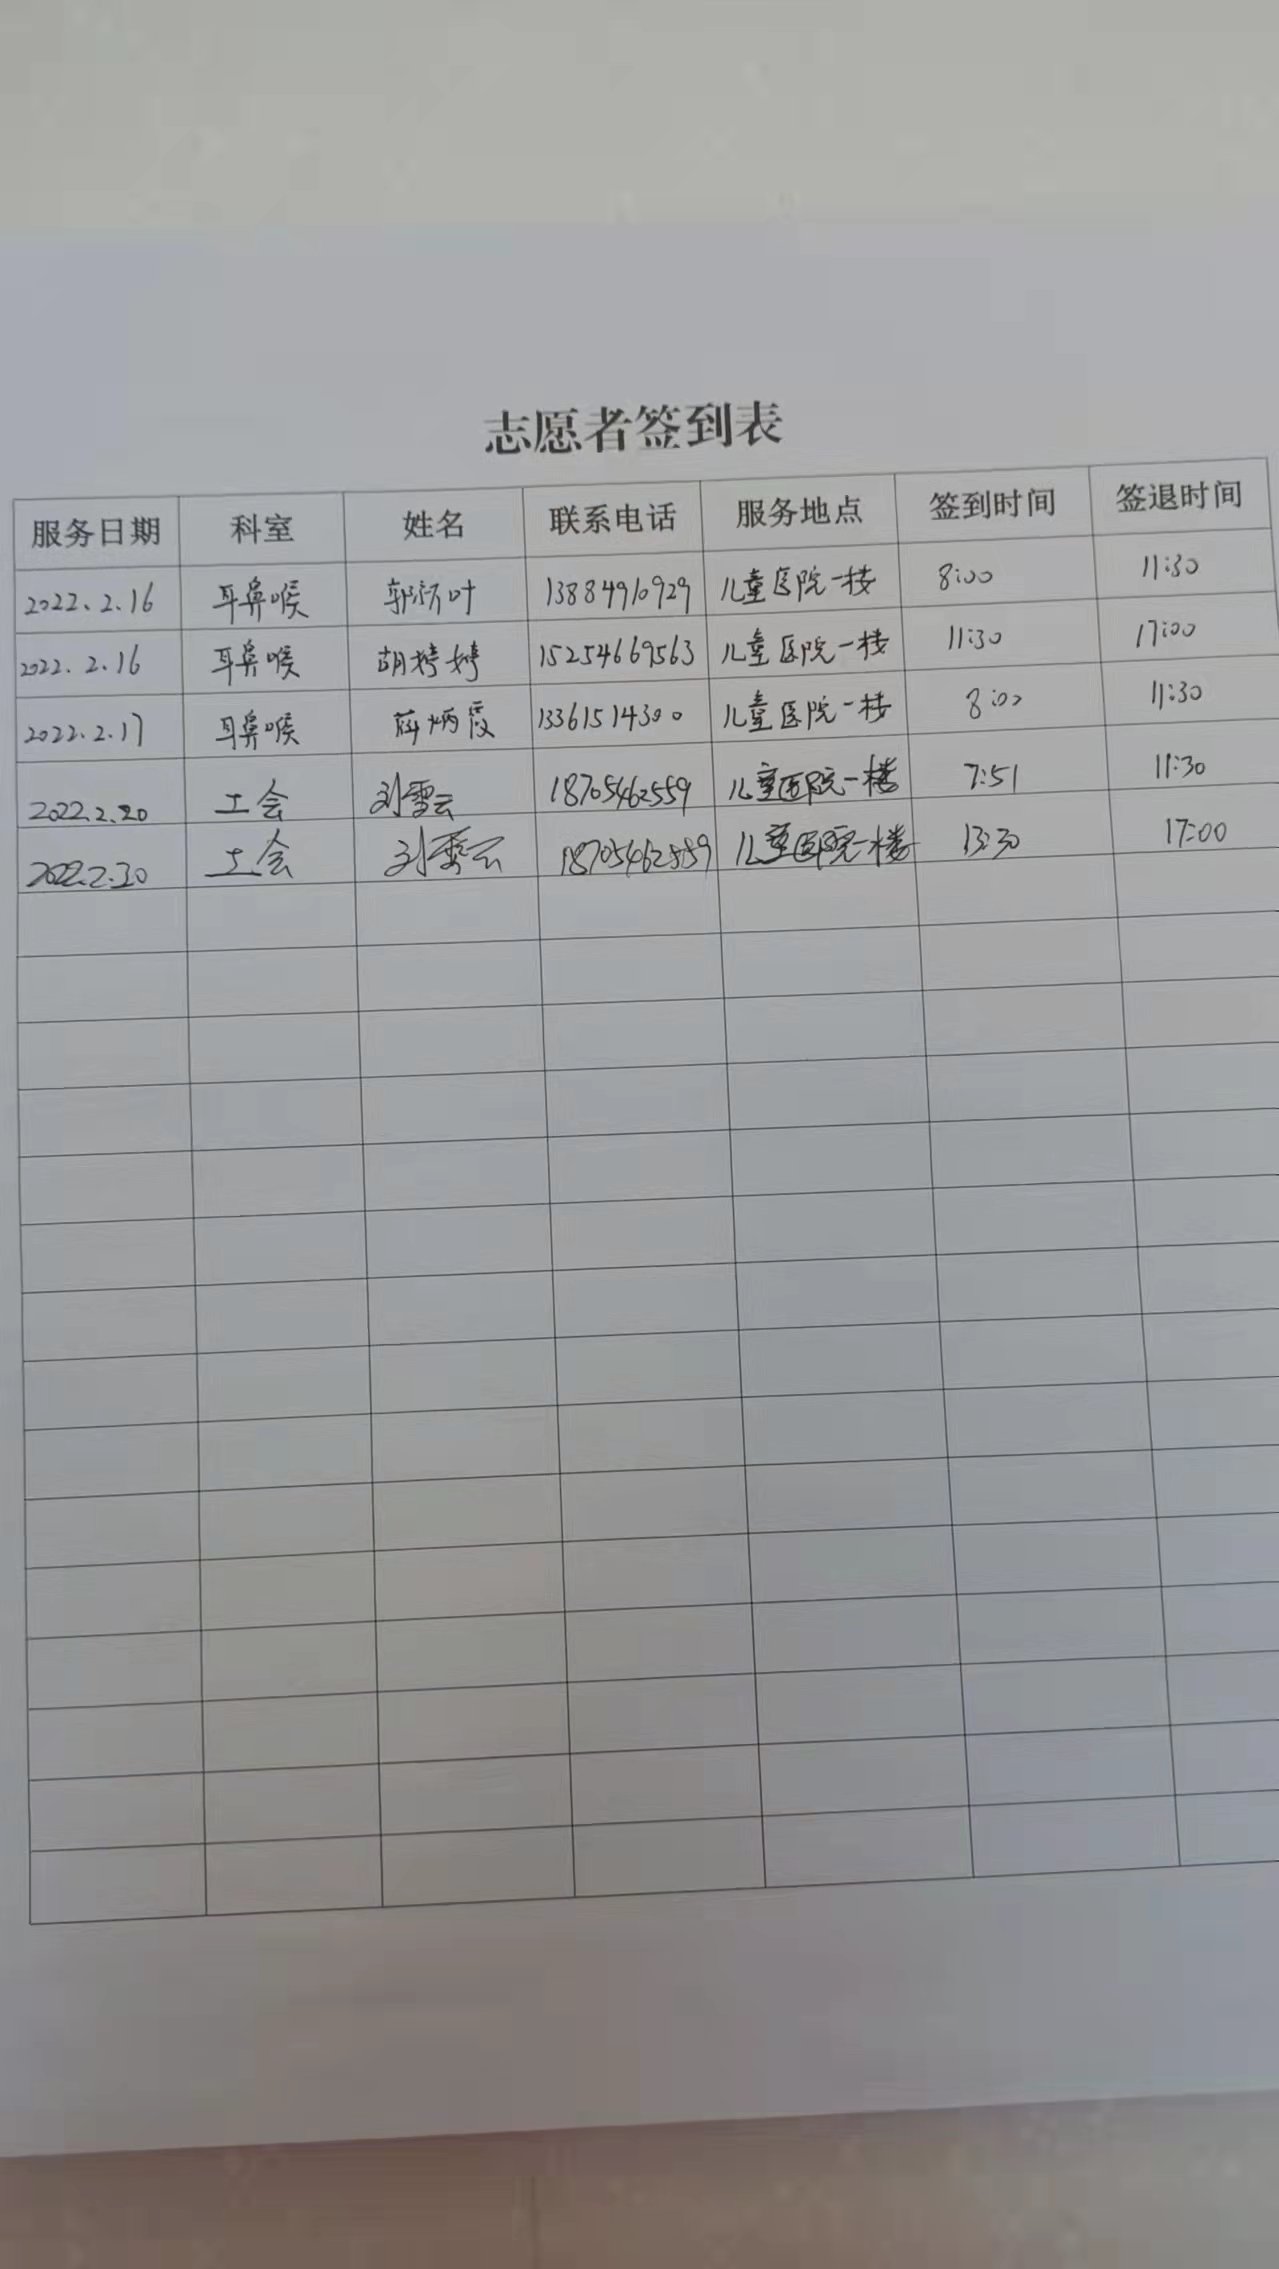 志愿者签到表
服务日期 科室 姓名 联系电话 服务地点 签到时间 签退时间
2022.2.16 耳鼻喉 13884910929 儿童医院一楼 8:00 11:30
2022.2.16 耳鼻喉 胡婷婷 15254669563 儿童医院一楼 11:30 17:00
2022.2.17 耳鼻喉 薛炳霞 13361514300 儿童医院一楼 8:00 11:30
2022.2.20 工会 刘雪云 18705462559 儿童医院一楼 7:51 11:30
2022.2.20 工会 刘雪云 18705462559 儿童医院一楼 13:30 17:00